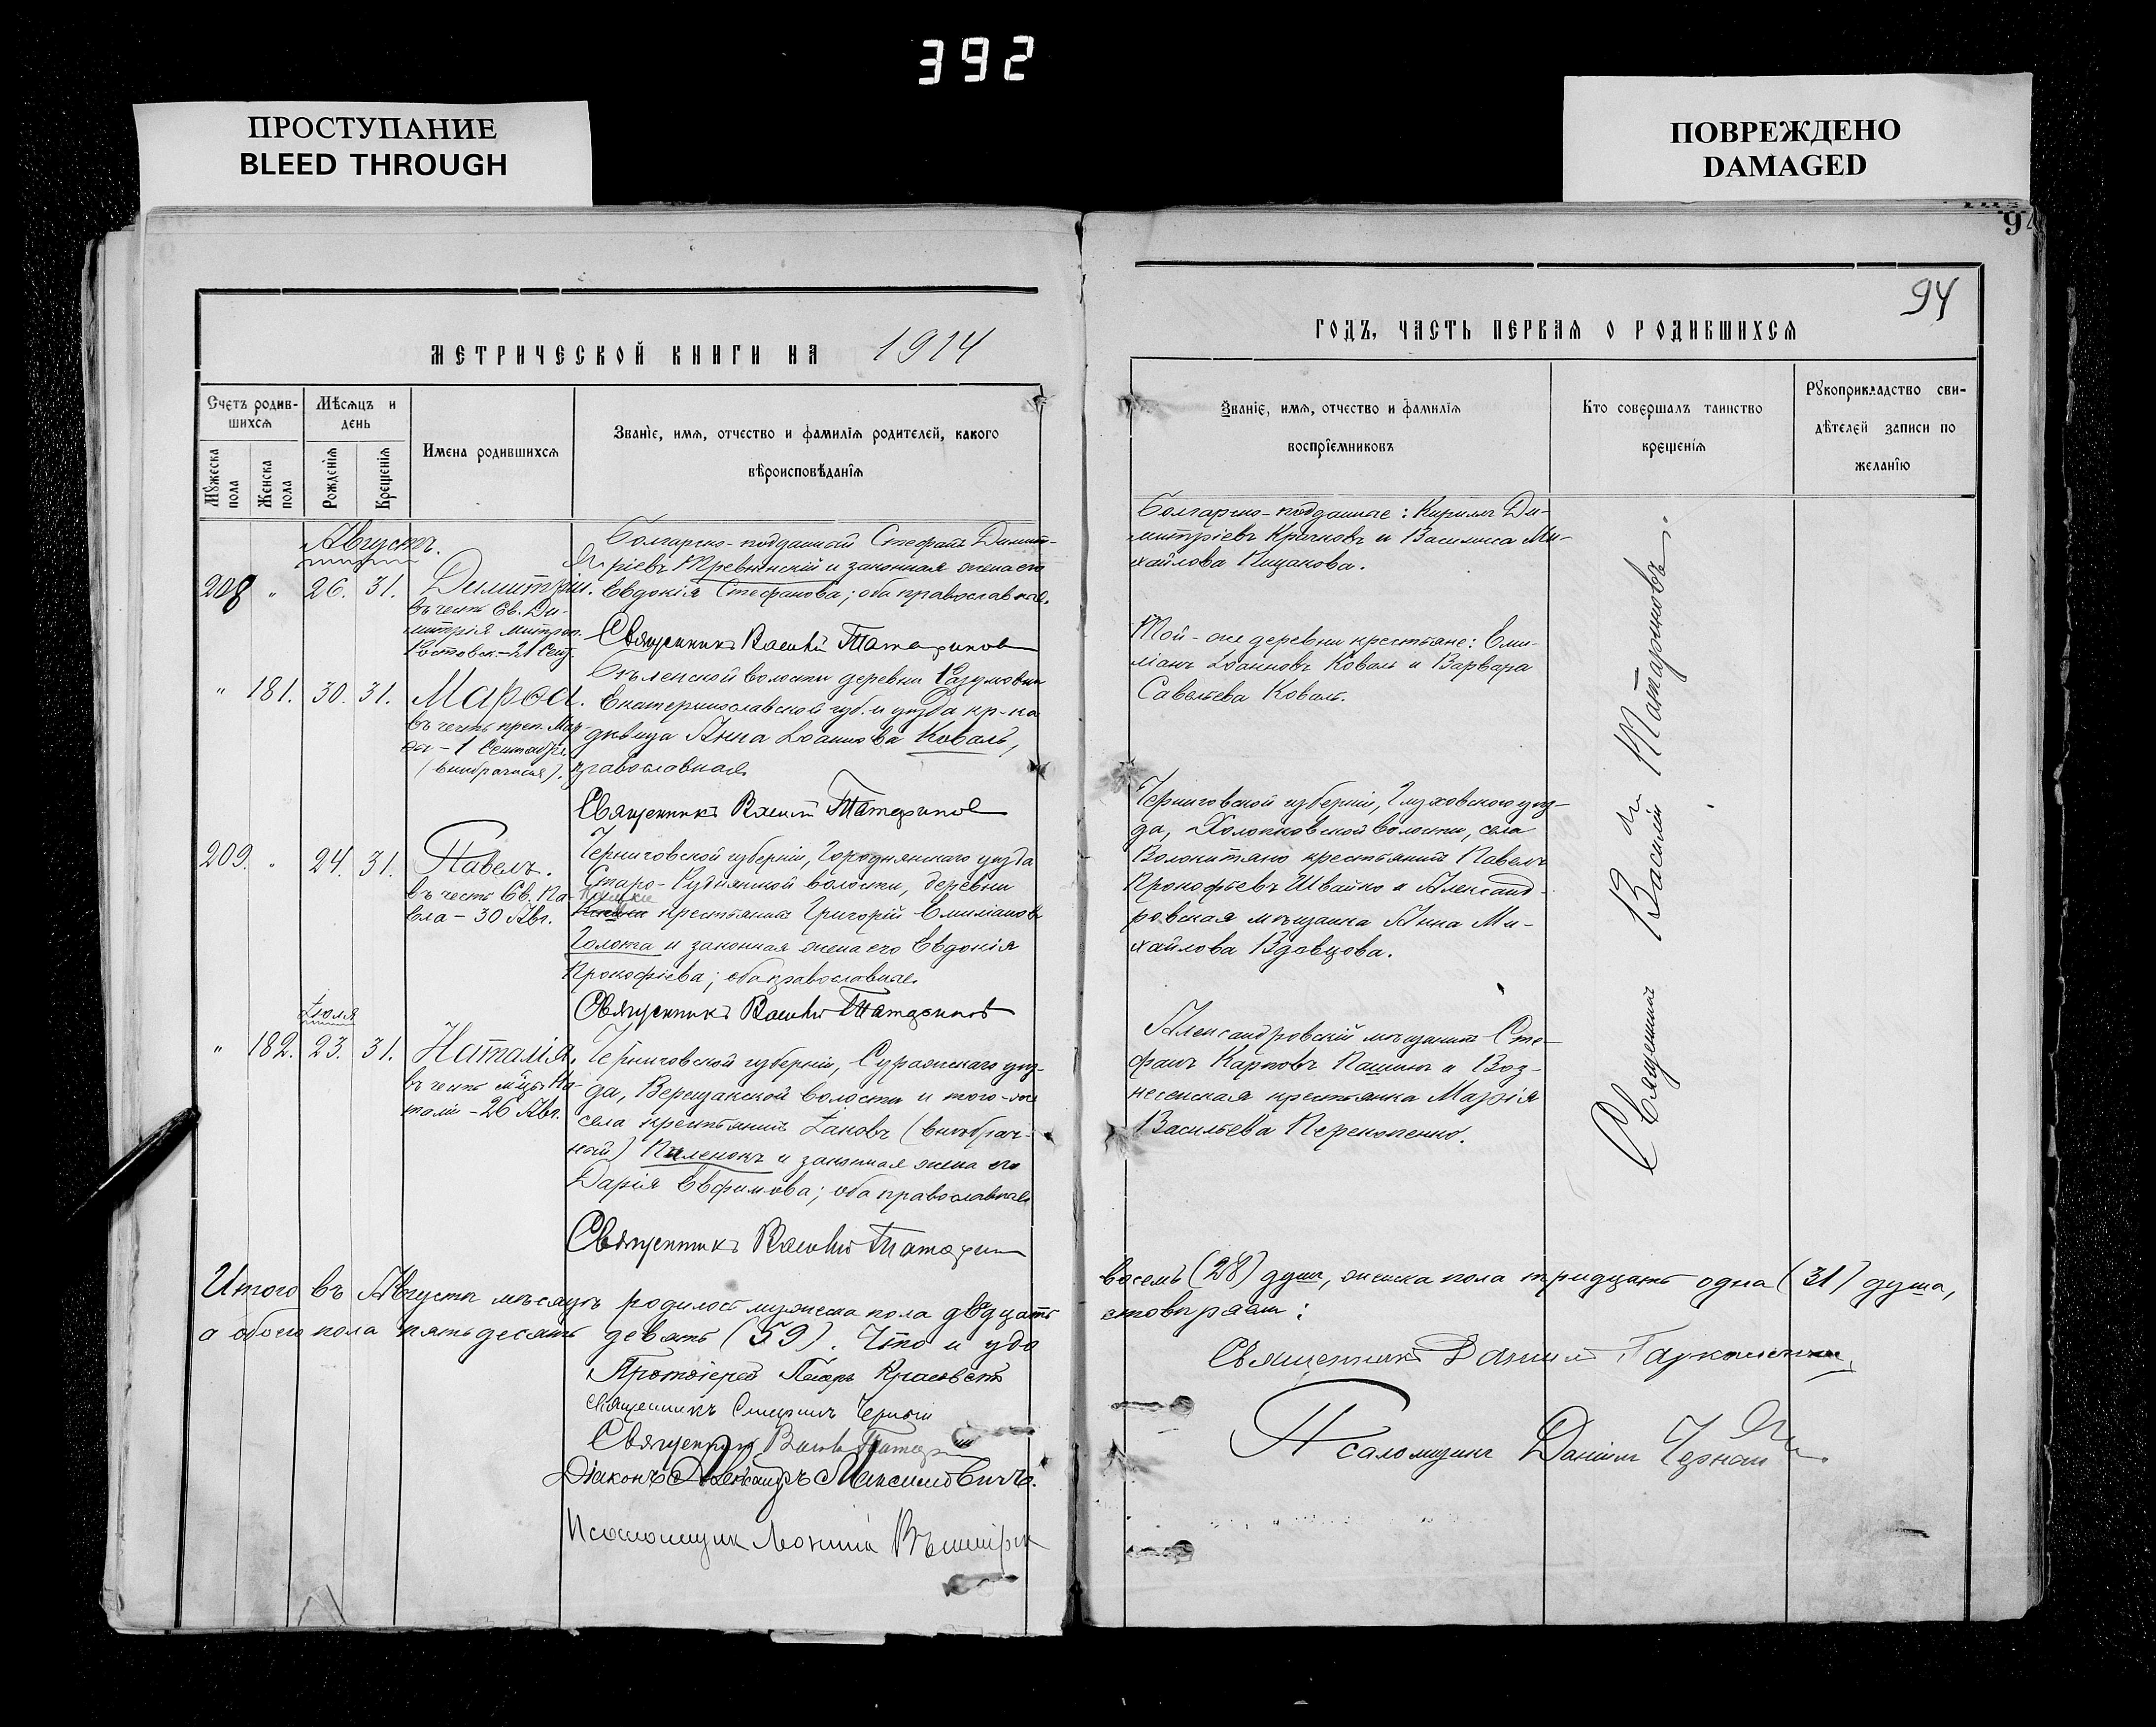 392
ПРОСТУПАНИЕ
BLEED THROUGH
ПОВРЕЖДЕНО
DAMAGED
94
МЕТРИЧЕСКОЙ КНИГИ НА 1914
Счетъ родив-
шихся
Мѣсяцъ и
день
Мужеска
пола
Женска
пола
Рожденія
Крещенія
Имена родившихся
Званіе, имя, отчество и фамилія родителей, какого
вѣроисповѣданія
Августъ.
208 " 26. 31. Димитрій.
въ честь Св. Ди-
митрія митроп.
Ростовск. - 21 Сент.
Болгарско-подданный Стефанъ Димит-
ріевъ и законная жена его
Евдокія Стефанова; оба православные.
Священникъ Василій Татариновъ
" 181. 30. 31. Марѳа.
въ честь преп. Мар-
ѳы - 1 Сентября
(внѣбрачная).
волости деревни Разумовки
Екатеринославской губ. и уѣзда кр-ка
дѣвица Анна Іоаннова Коваль,
православная.
Священникъ Василій Татариновъ
209. " 24. 31. Павелъ.
въ честь Св. Па-
вла - 30 Авг.
Черниговской губерніи, Городнянскаго уѣзда
Старо-Руднянской волости, деревни
крестьянинъ Григорій Емиліановъ
Голота и законная жена его Евдокія
Прокофіева; оба православные.
Священникъ Василій Татариновъ
Іюля
" 182. 23. 31. Наталія.
въ честь муч. На-
таліи - 26 Авг.
Черниговской губерніи, Суражскаго уѣз-
да, Верещакской волости и того-же
села крестьянинъ Іаковъ (внѣбрач-
ный) Пиленокъ и законная жена его
Дарія Евфимова; оба православные
Священникъ Василій Татаринов
Итого въ Августѣ мѣсяцѣ родилось мужеска пола двадцать
а обоего пола пятьдесятъ девять (59). Что и удо
Протоіерей Петръ
Священникъ Черный
Священникъ Василій Татарин
Діаконъ Александръ Максимовичъ.
Псаломщик
94
ГОДЪ, ЧАСТЬ ПЕРВАЯ О РОДИВШИХСЯ
Званіе, имя, отчество и фамилія
воспріемниковъ
Кто совершалъ таинство
крещенія
Рукоприкладство сви-
дѣтелей записи по
желанію
Болгарско-подданные: Кириллъ Ди-
митріевъ Крачковъ и Василиса Ми-
хайлова Пищакова.
Той-же деревни крестьяне: Еми-
ліанъ Іоанновъ Коваль и Варвара
Савельева Коваль.
Черниговской губерніи, Глуховского уѣз-
да, Холопковской волости, села
Волокитино крестьянинъ Павелъ
Прокофьевъ Швайко и Александ-
ровская мѣщанка Анна Ми-
хайлова Вдовцова.
Александровскій мѣщанинъ Сте-
фанъ Карповъ Пашинъ и Воз-
несенская крестьянка Марія
Васильева Перекопенко.
Священникъ Василій Татариновъ.
восемь (28) душъ, женска пола тридцать одна (31) душа,
стовѣряемъ:
Священникъ Даніилъ
Псаломщикъ Даніилъ Черный